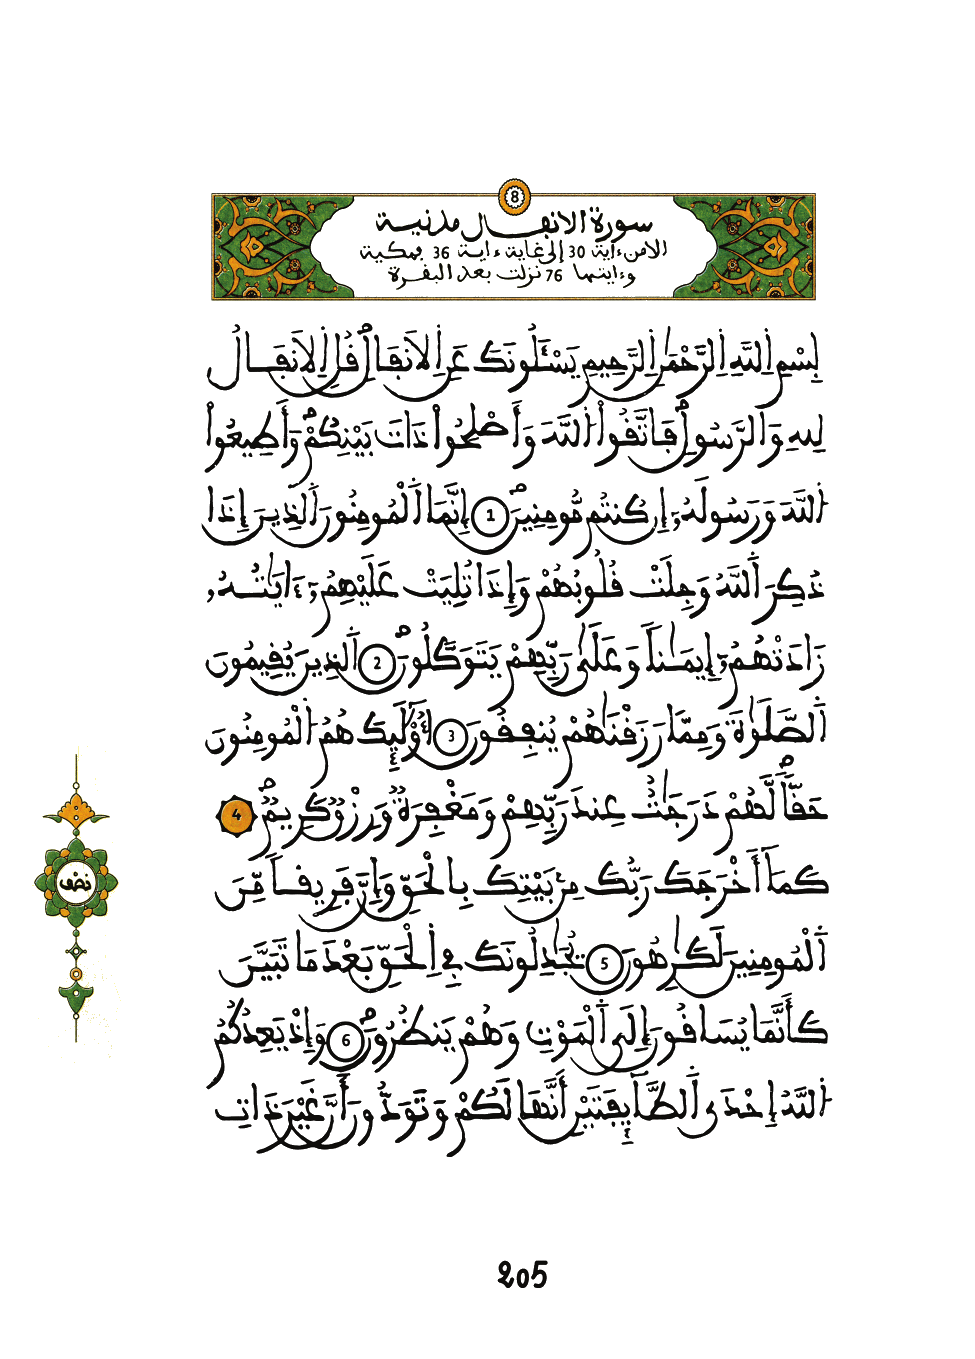 8
سورة الانفال مدنية
الا من ءاية 30 إلى غاية ءاية 36 فمكية
وءايتها 76 نزلت بعد البقرة
بِسْمِ اِللَّهِ اِلرَّحْمَٰنِ اِلرَّحِيمِ يَسْـَٔلُونَكَ عَنِ اِلَانفَالِ قُلِ اِلَانفَالُ
لِلهِ وَالرَّسُولِ فَاتَّقُواْ اُللَّهَ وَأَصْلِحُواْ ذَاتَ بَيْنِكُمْ وَأَطِيعُواْ
اُللَّهَ وَرَسُولَهُۥٓ إِن كُنتُم مُّومِنِينَ 1 إِنَّمَا اَلْمُومِنُونَ اَلذِينَ إِذَا
ذُكِرَ اَللَّهُ وَجِلَتْ قُلُوبُهُمْ وَإِذَا تُلِيَتْ عَلَيْهِمُۥٓ ءَايَٰتُهُۥ
زَادَتْهُمُۥٓ إِيمَٰناً وَعَلَىٰ رَبِّهِمْ يَتَوَكَّلُونَ 2 اَلذِينَ يُقِيمُونَ
اَلصَّلَوٰةَ وَمِمَّا رَزَقْنَٰهُمْ يُنفِقُونَ 3 أُوْلَٰٓئِكَ هُمُ اُلْمُومِنُونَ
حَقّاٗ لَّهُمْ دَرَجَٰتٌ عِندَ رَبِّهِمْ وَمَغْفِرَةٌ وَرِزْقٌ كَرِيمٌ 4
كَمَآ أَخْرَجَكَ رَبُّكَ مِنۢ بَيْتِكَ بِالْحَقِّ وَإِنَّ فَرِيقاً مِّنَ
اَلْمُومِنِينَ لَكَٰرِهُونَ 5 يُجَٰدِلُونَكَ فِي اِلْحَقِّ بَعْدَ مَا تَبَيَّنَ
كَأَنَّمَا يُسَاقُونَ إِلَى اَلْمَوْتِ وَهُمْ يَنظُرُونَ 6 وَإِذْ يَعِدُكُمُ
اُللَّهُ إِحْدَى اَلطَّآئِفَتَيْنِ أَنَّهَا لَكُمْ وَتَوَدُّونَ أَنَّ غَيْرَ ذَاتِ
نصف
205